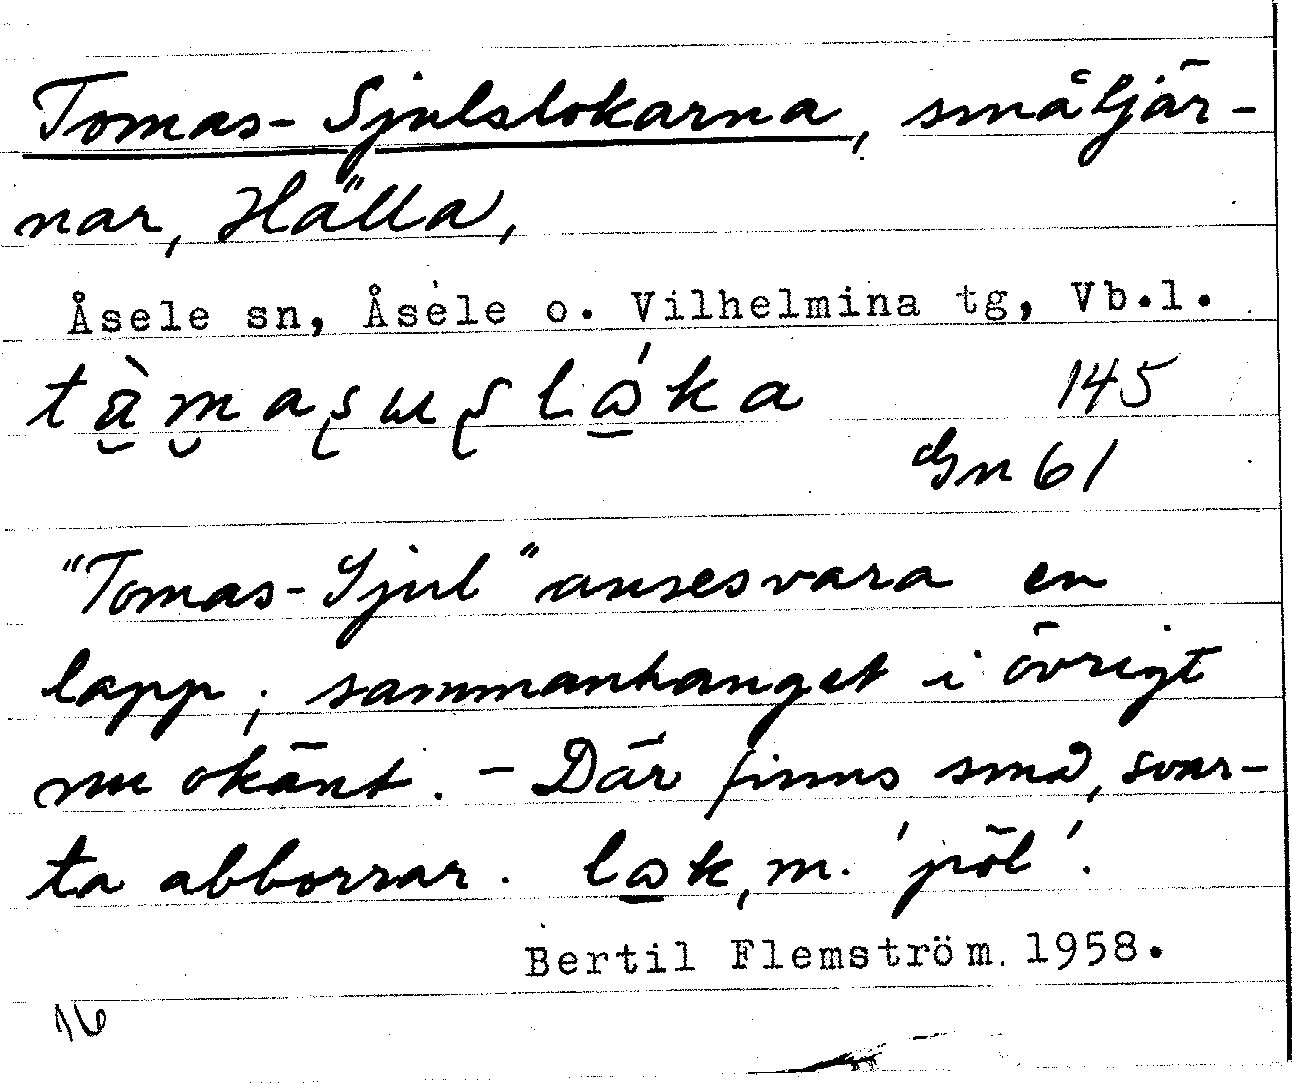 Tomas-Sjulslokarna, småtjär-
nar, Hälla,
Åsele sn, Åsele o. Vilhelmina tg, Vb.l.
145
Gn 61
"Tomas-Sjul" anses vara en
lapp; sammanhanget i övrigt
nu okänt. - Där finns små, svar-
ta abborrar. lɷk, m. 'pöl'.
Bertil Flemström 1958.
16